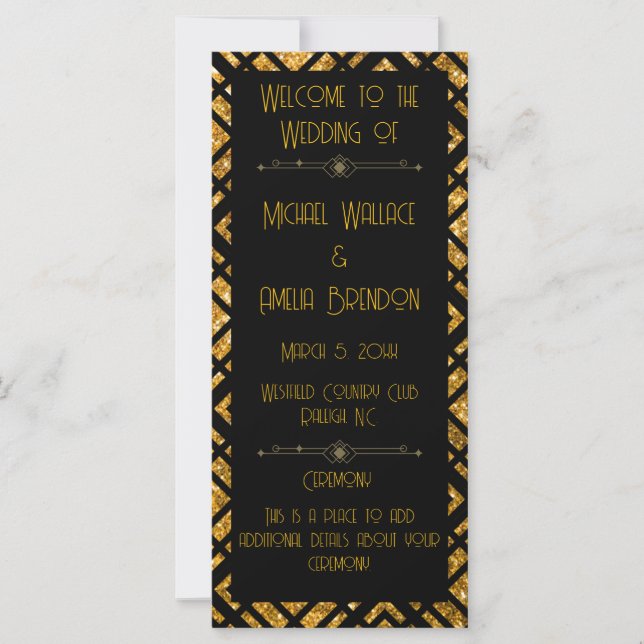 Welcome to the
Wedding of
Michael Wallace
&
Amelia Brendon
March 5, 20xx
Westfield Country Club
Raleigh, NC
Ceremony
This is a place to add
additional details about your
ceremony.